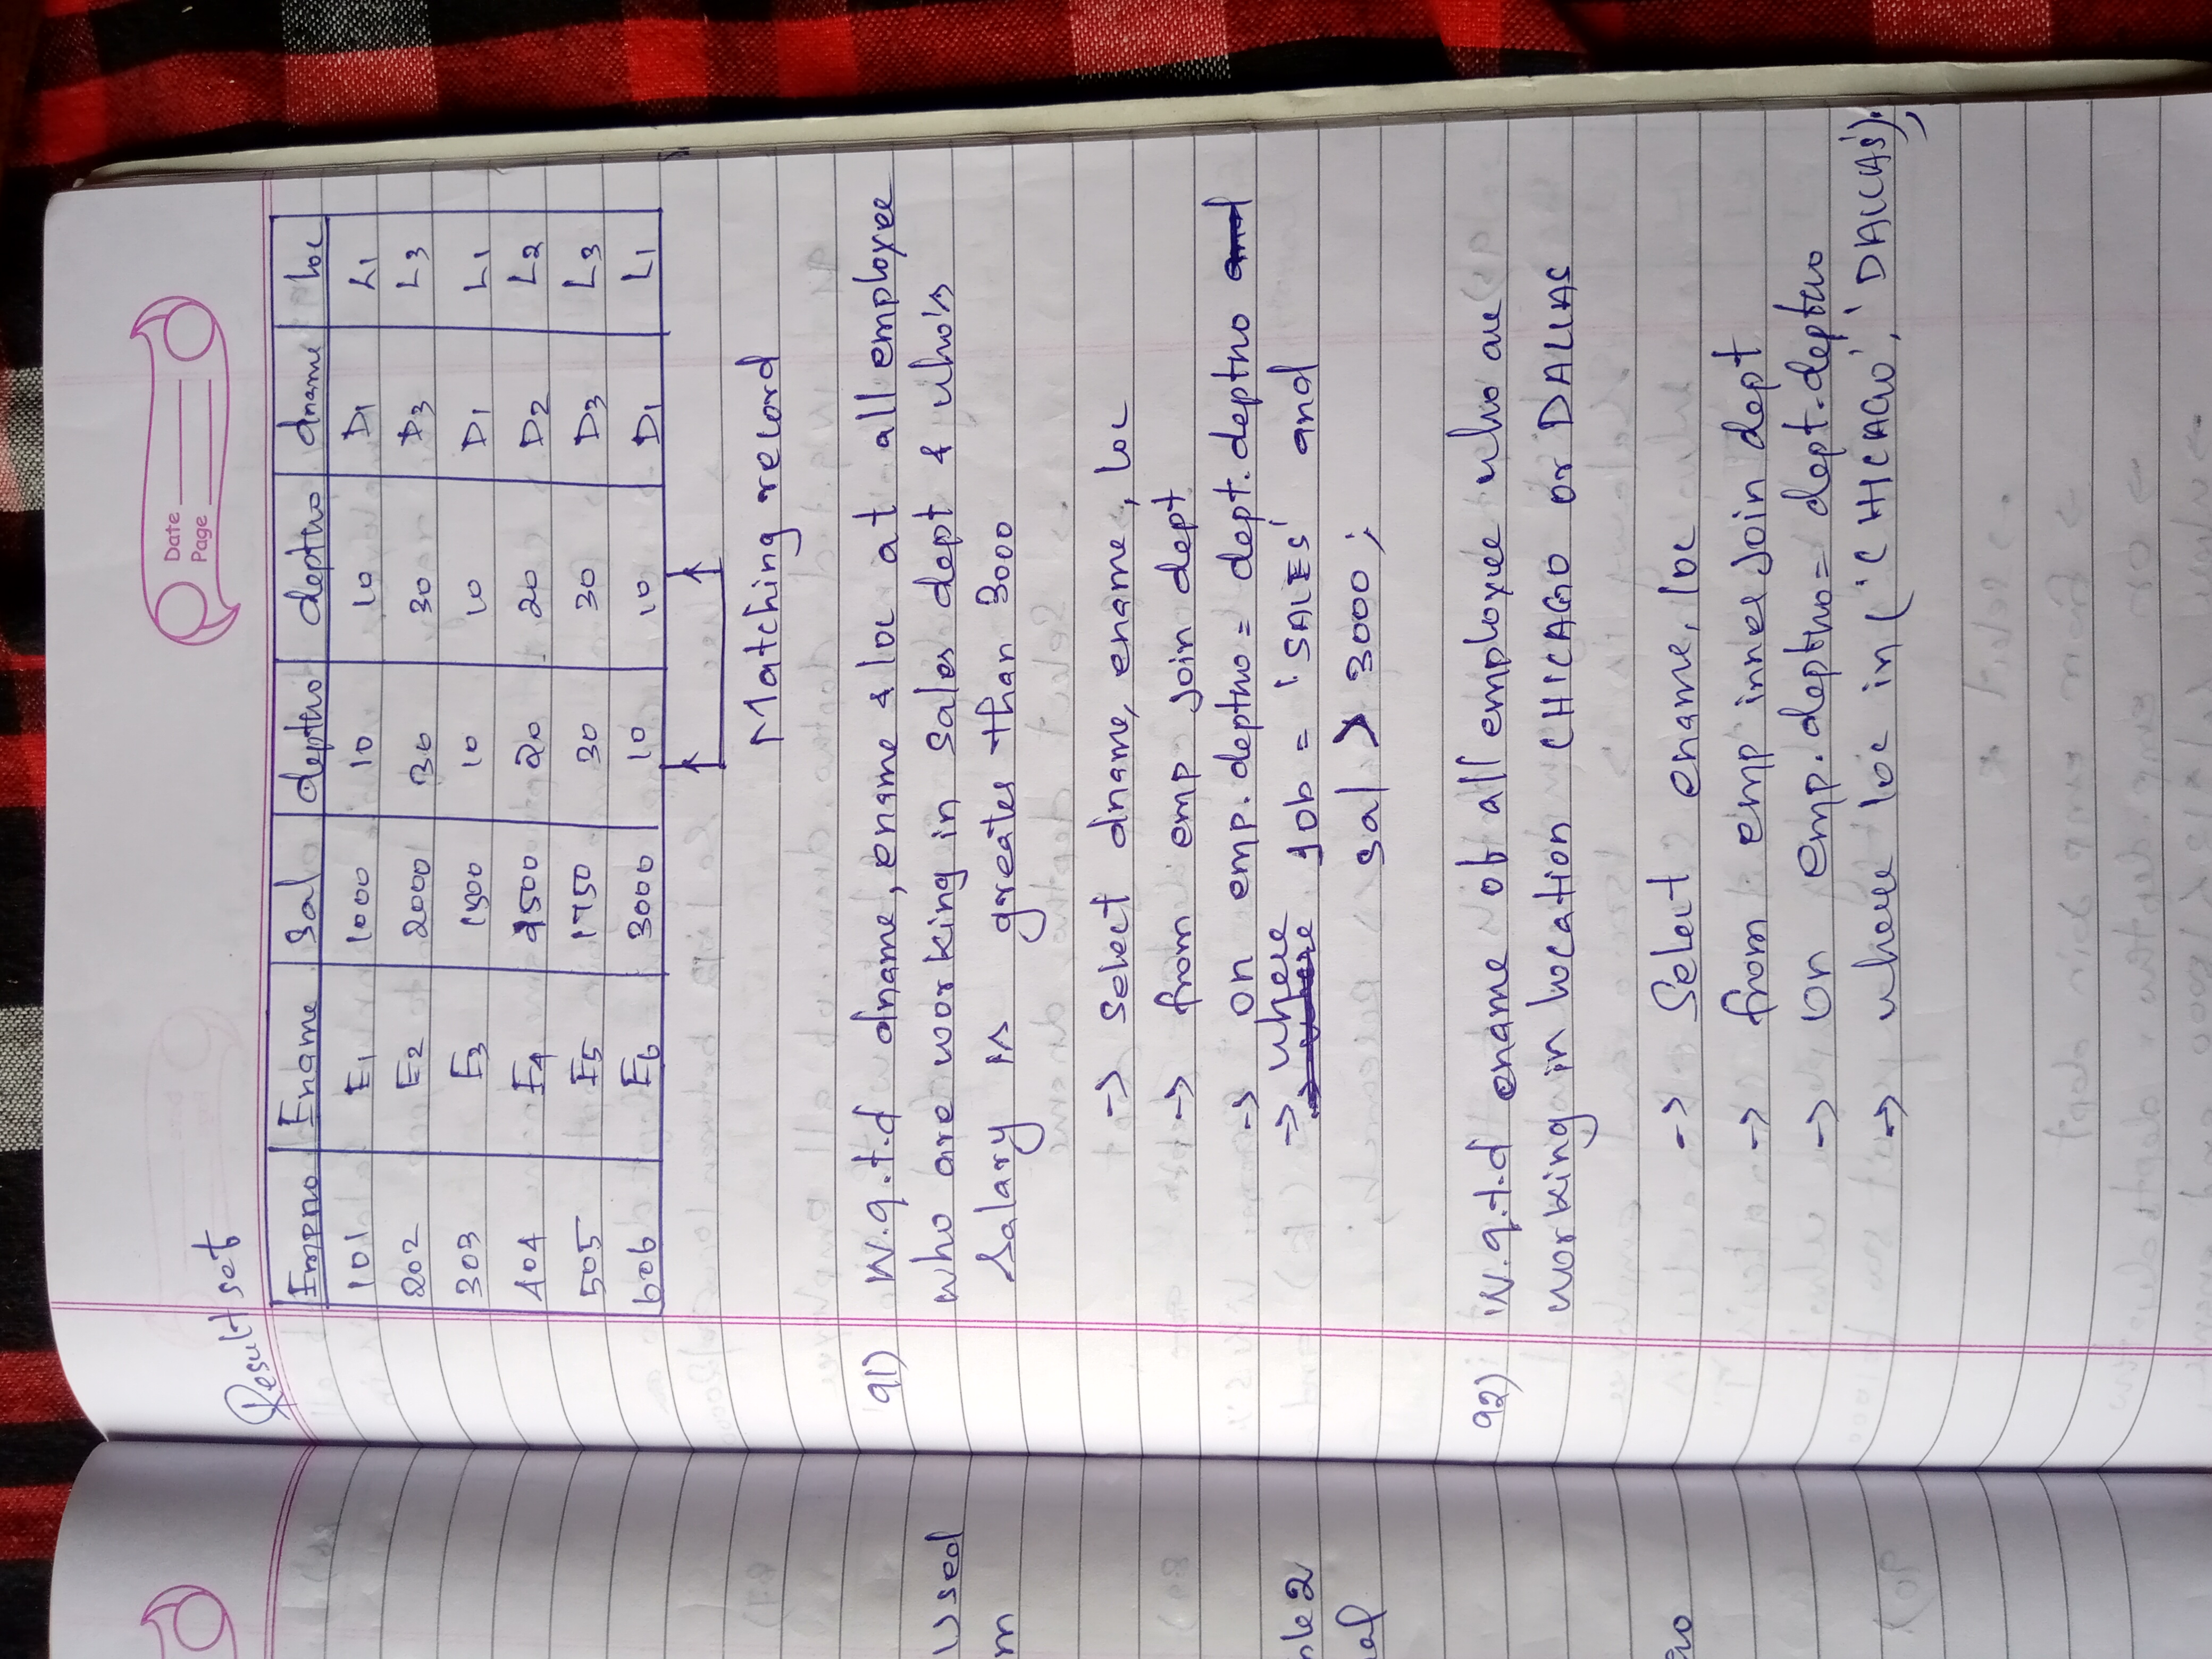 Date
Page
Result set
Empno Ename Sal deptno deptno dname loc
101 E1 1000 10 10 D1 L1
202 E2 2000 30 30 D3 L3
303 E3 1500 10 10 D1 L1
404 E4 9500 20 20 D2 L2
505 E5 1750 30 30 D3 L3
606 E6 3000 10 10 D1 L1
Matching record
91) W.q.t.d dname, ename & loc at all employee
who are working in Sales dept & who's
Salary is greater than 3000
-> select dname, ename, loc
-> from emp join dept
-> on emp.deptno = dept.deptno and
-> where job = 'SALES' and
sal > 3000 ;
92) W.q.t.d ename of all employee who are
working in location CHICAGO or DALLAS
-> Select ename, loc
-> from emp inner join dept
-> on emp.deptno = dept.deptno
-> where loc in ('CHICAGO', 'DALLAS');
Used
m